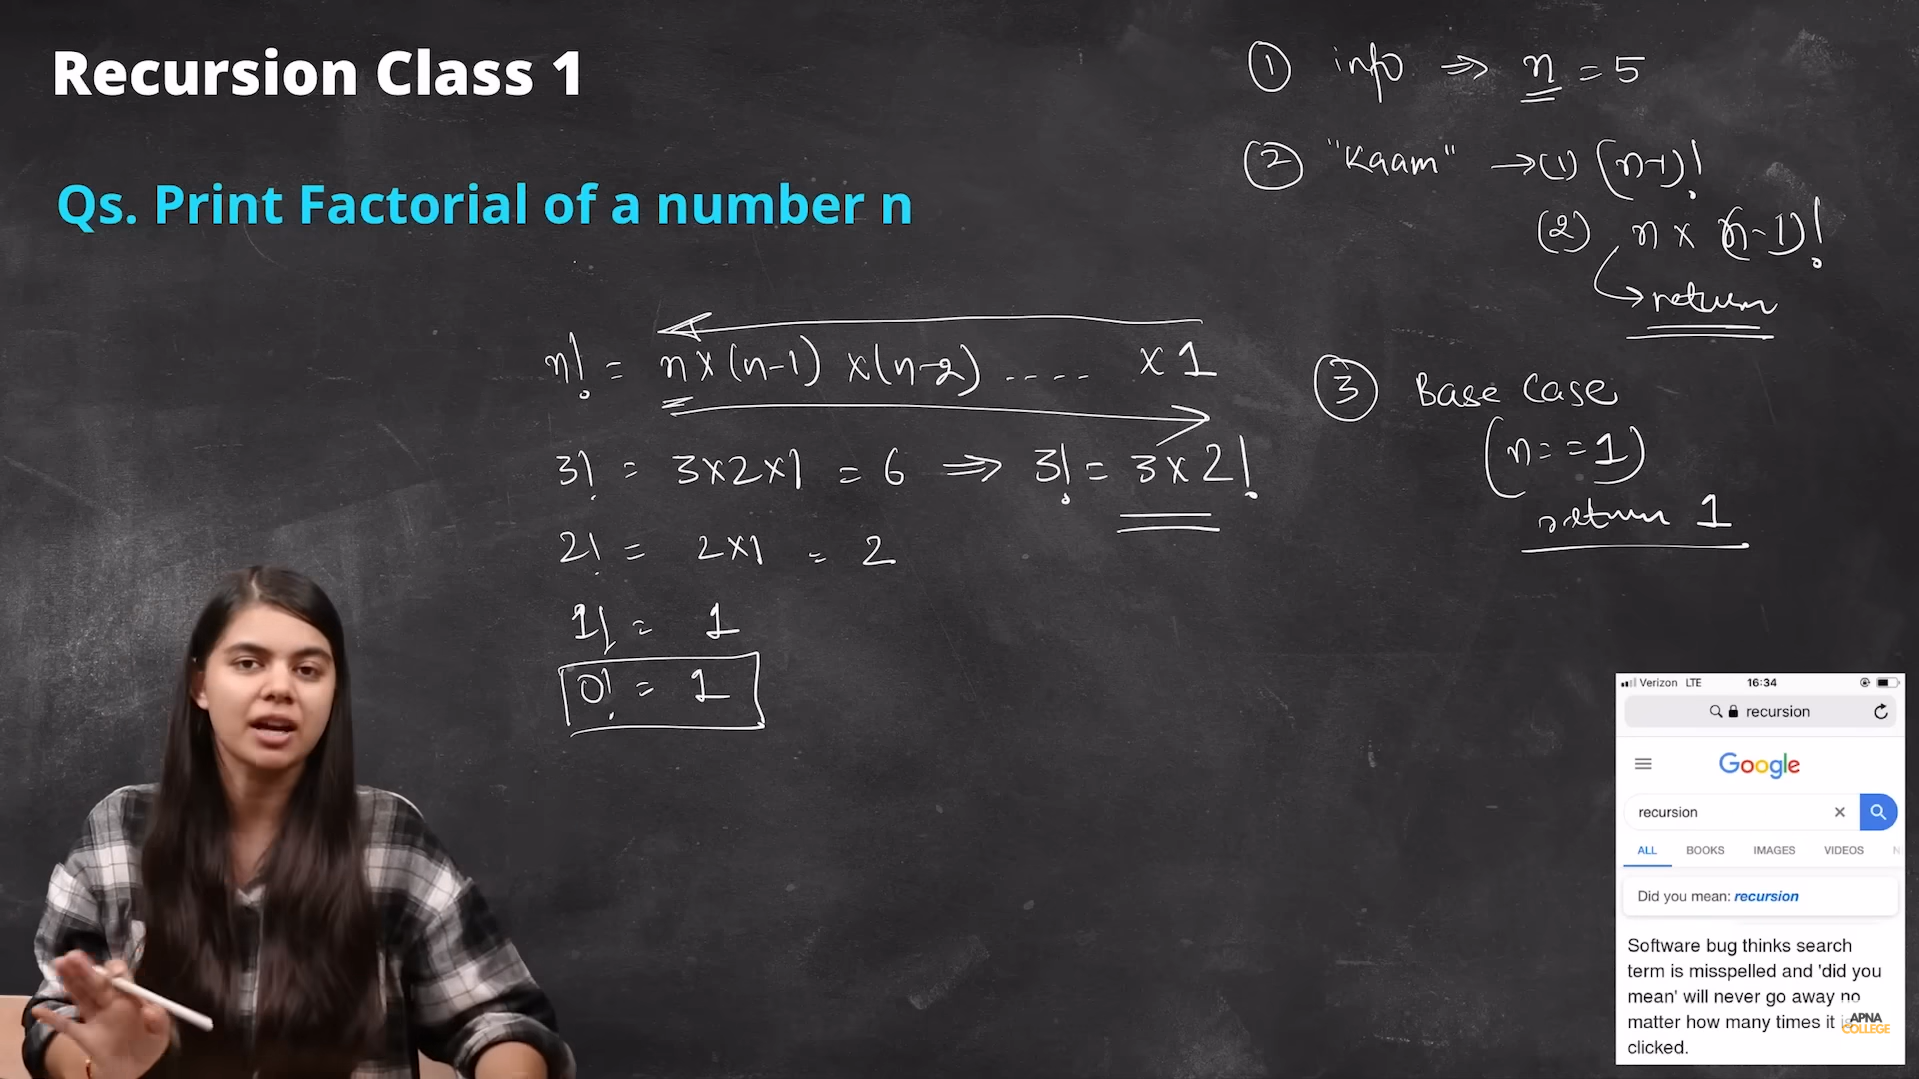 Recursion Class 1
Qs. Print Factorial of a number n
① info ⇒ n = 5
② "Kaam" → (1) (n-1)!
(2) n x (n-1)!
↳ return
③ Base Case
(n==1)
return 1
n! = n x (n-1) x (n-2) .... x 1
3! = 3x2x1 = 6 ⇒ 3! = 3 x 2!
2! = 2x1 = 2
1! = 1
0! = 1
Verizon LTE 16:34
recursion
Google
recursion
ALL BOOKS IMAGES VIDEOS
Did you mean: recursion
Software bug thinks search
term is misspelled and 'did you
mean' will never go away no
matter how many times it is
clicked.
APNA
COLLEGE